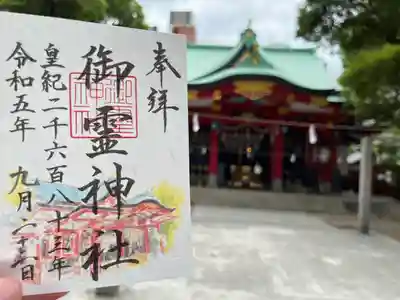 奉拝
御霊神社
皇紀二千六百八十三年
令和五年 九月二十二日